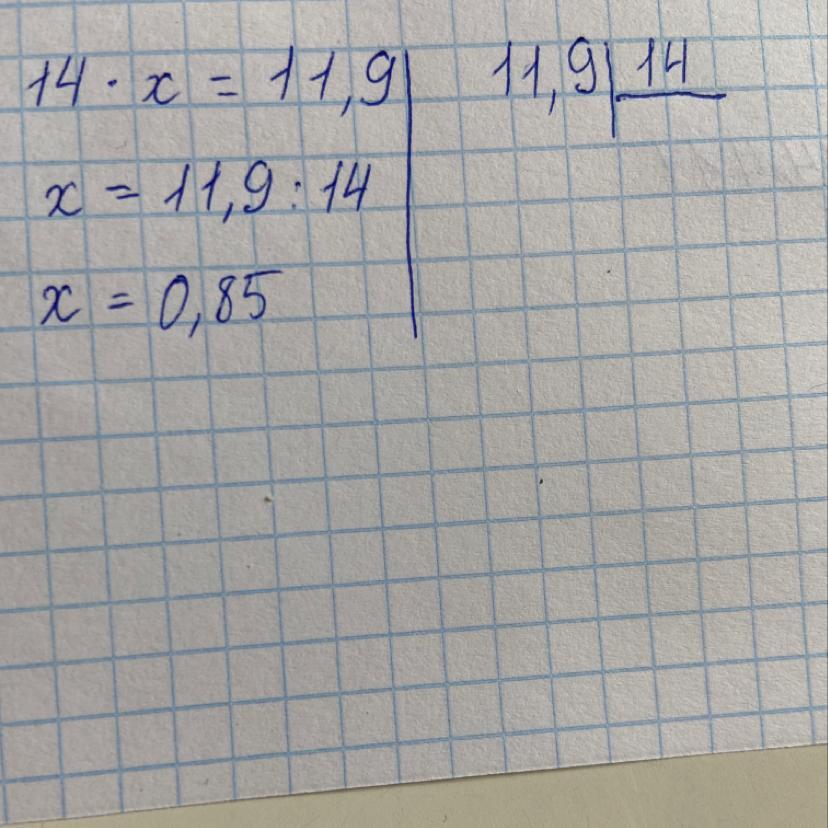 14 · x = 11,9
x = 11,9 : 14
x = 0,85
11,9 14